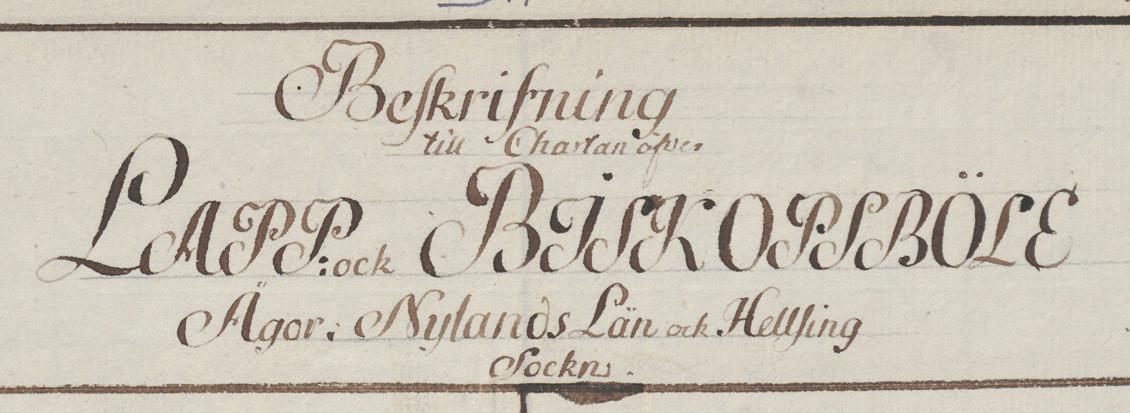 Beskrifning
till Chartan öfver
LAPP: och BISKOPSBÖLE
Ägor: Nylands Län och Hellsing
Sockn.